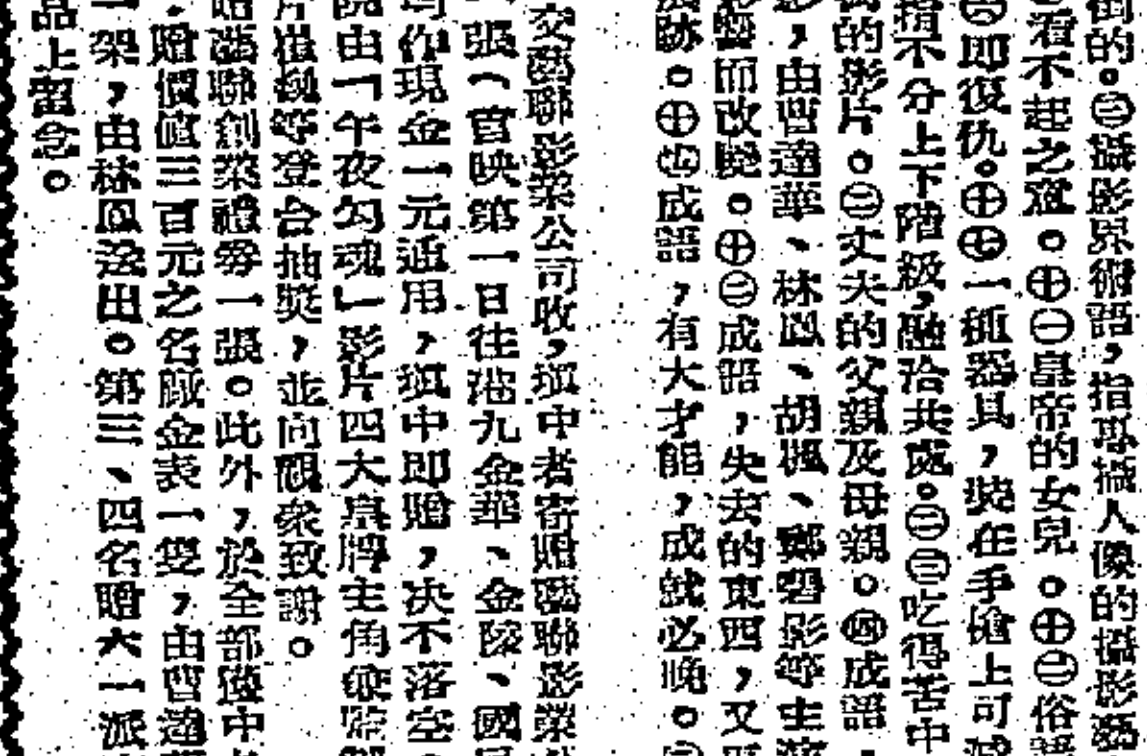 倒的。㊂攝影界術語，指專攝人像的攝影
看不起之意。㊉㊀皇帝的女兒。㊉㊁俗
即復仇。㊉㊆一種器具，裝在手槍上可減
指不分上下階級，融洽共處。㊁㊂吃得苦中
的影片。㊁丈夫的父親及母親。㊃成語，
影，由曹達華、林鳳、胡楓、鄭碧影等主
而改變。㊉㊁成語，失去的東西，又
跡。㊉㊃成語，有大才能，成就必晚。
交藝聯影業公司收，填中者寄贈藝聯影業
張（首映第一日往港九金華、金陵、國
作現金一元通用，填中即贈，决不落空。
院由「午夜勾魂」影片四大皇牌主角
等登台抽獎，並向觀衆致謝。
藝聯創業禮劵一張。此外，於全部獲中
，贈價值三百元之名廠金表一隻，由曹達
架，由林鳳送出。第三、四名贈大一派
品上留念。